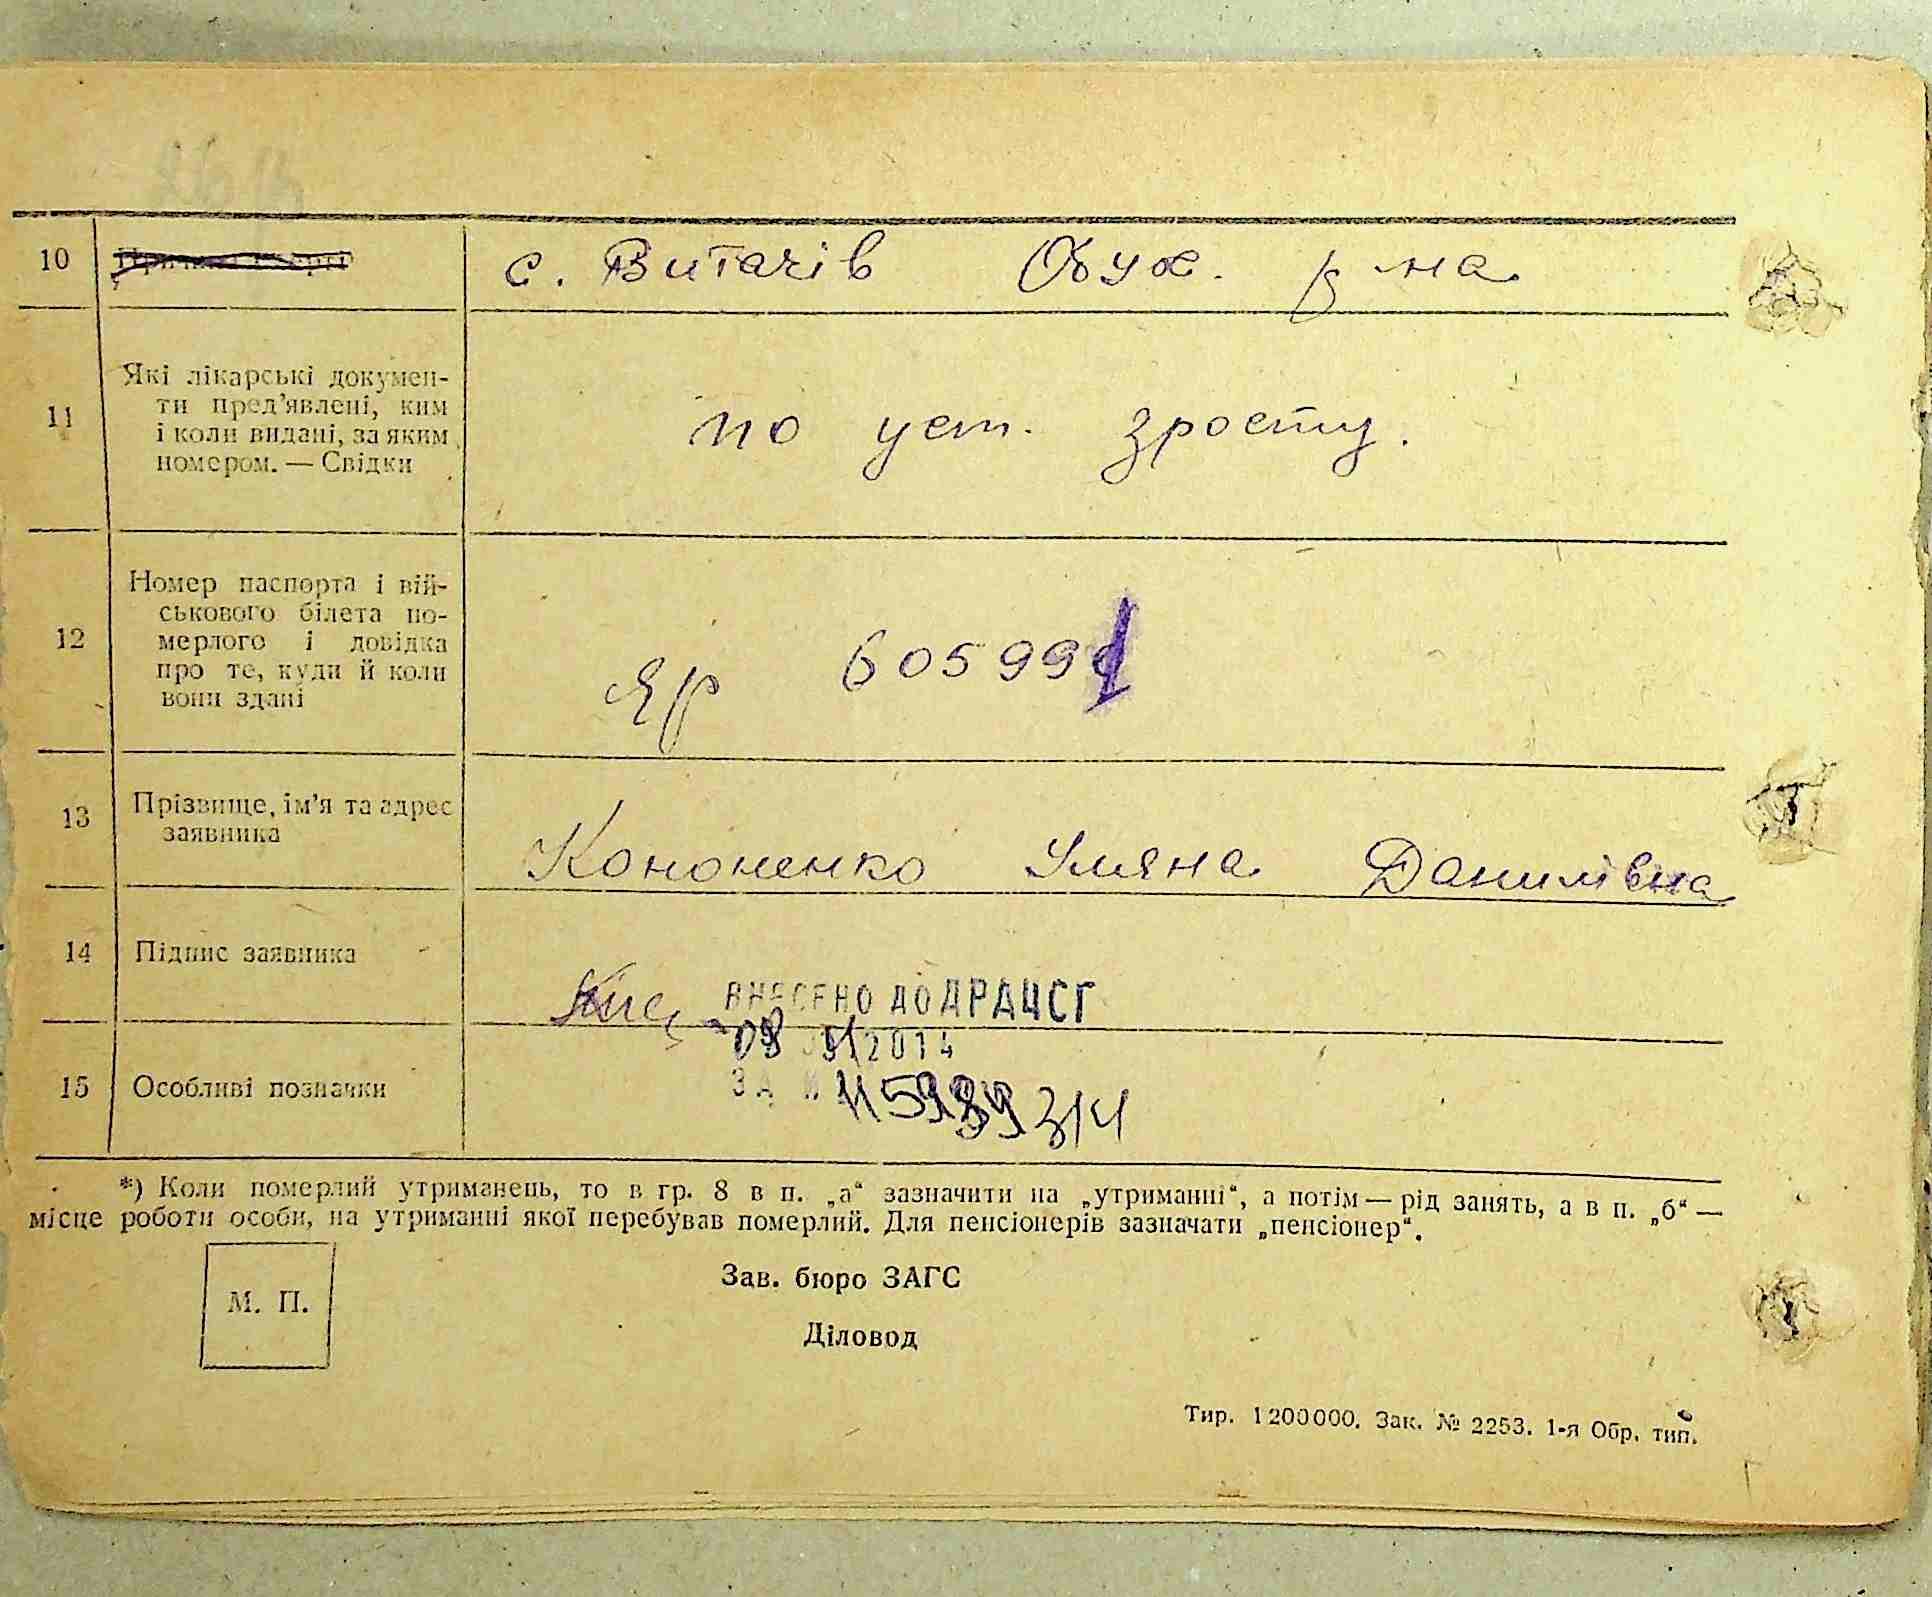 10 Причина смерті с. Витачів Обух. р на
11 Які лікарські докумен-
ти пред'явлені, ким
і коли видані, за яким
номером. — Свідки
по уст. зросту.
12 Номер паспорта і вій-
ськового білета по-
мерлого і довідка
про те, куди й коли
вони здані
ЯР 605991
13 Прізвище, ім'я та адрес
заявника
Кононенко Уляна Данилівна
14 Підпис заявника
ВНЕСЕНО ДО ДРАЦСГ
2014
15 Особливі позначки
ЗА
*) Коли померлий утриманець, то в гр. 8 в п. „а“ зазначити на „утриманні“, а потім — рід занять, а в п. „б“ —
місце роботи особи, на утриманні якої перебував померлий. Для пенсіонерів зазначати „пенсіонер“.
М. П.
Зав. бюро ЗАГС
Діловод
Тир. 1200000. Зак. № 2253. 1-я Обр. тип.